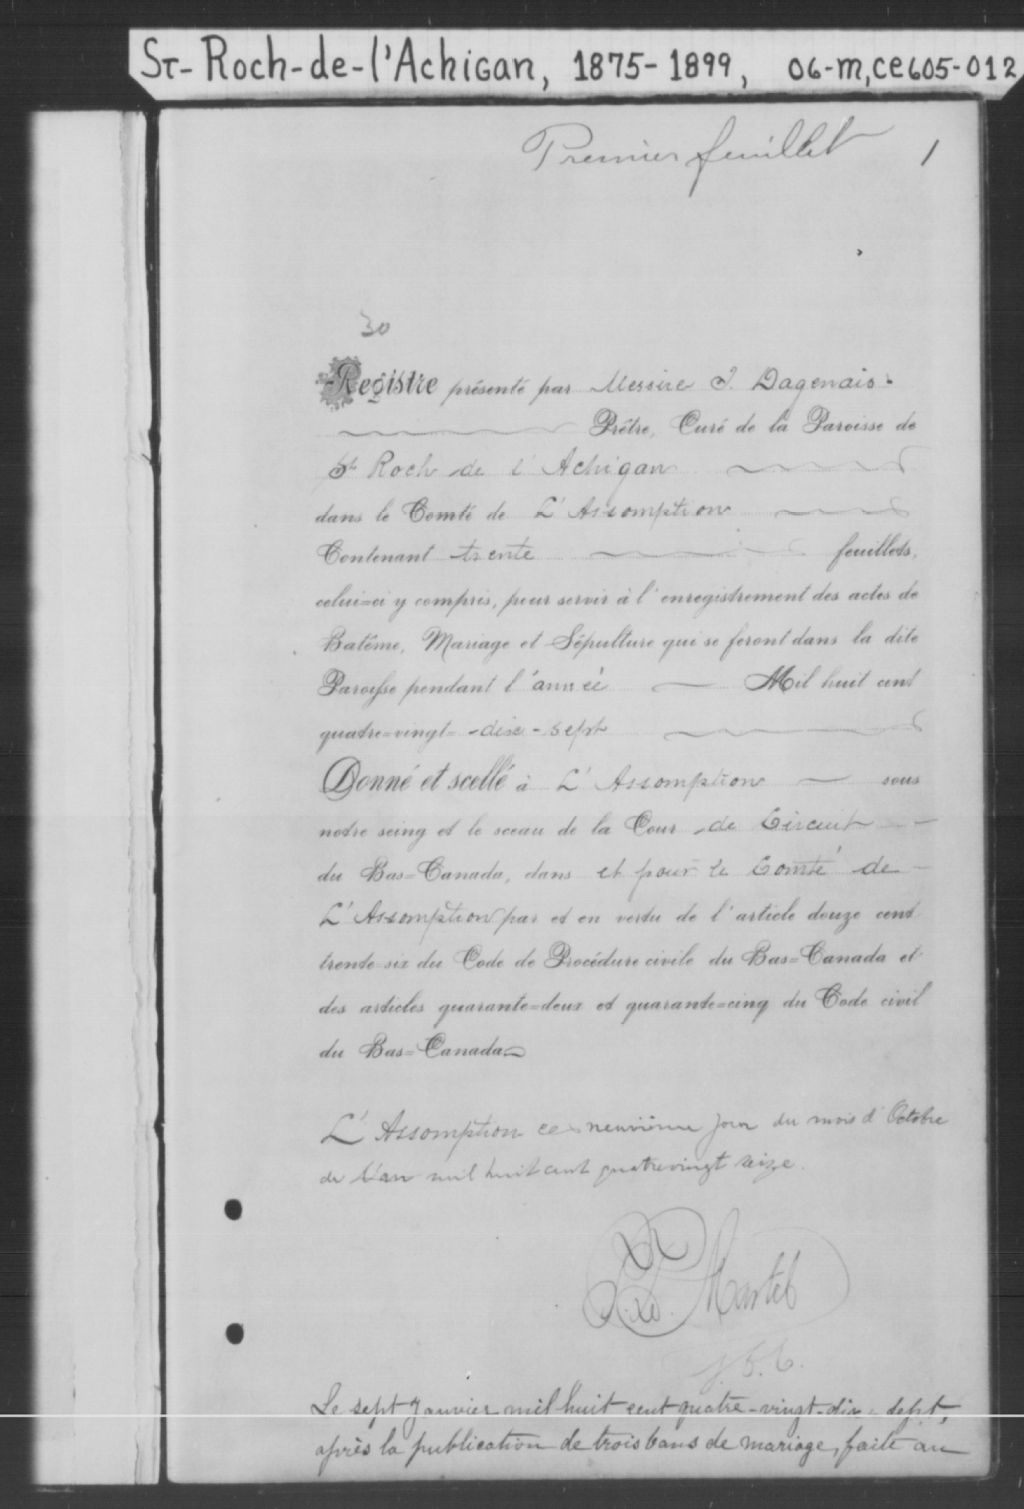 St-Roch-de-l'Achigan, 1875-1899, 06-m,ce605-012
Premier feuillet 1
30
Registre présenté par Messire J. Dagenais
Prêtre, Curé de la Paroisse de
St Roch de l'Achigan
dans le Comté de L'Assomption
Contenant trente feuillets,
celui=ci y compris, pour servir à l'enregistrement des actes de
Batême, Mariage et Sépulture qui se feront dans la dite
Paroisse pendant l'année Mil huit cent
quatre=vingt=dix-sept
Donné et scellé à L'Assomption sous
notre seing et le sceau de la Cour de Circuit
du Bas=Canada, dans et pour le Comté de
L'Assomption par et en vertu de l'article douze cent
trente=six du Code de Procédure civile du Bas=Canada et
des articles quarante=deux et quarante=cinq du Code civil
du Bas=Canada
L'Assomption ce neuvième jour du mois d'Octobre
de l'an mil huit cent quatrevingt seize.
Martel
Le sept Janvier mil huit cent quatre-vingt-dix-sept,
après la publication de trois bans de mariage, faite au